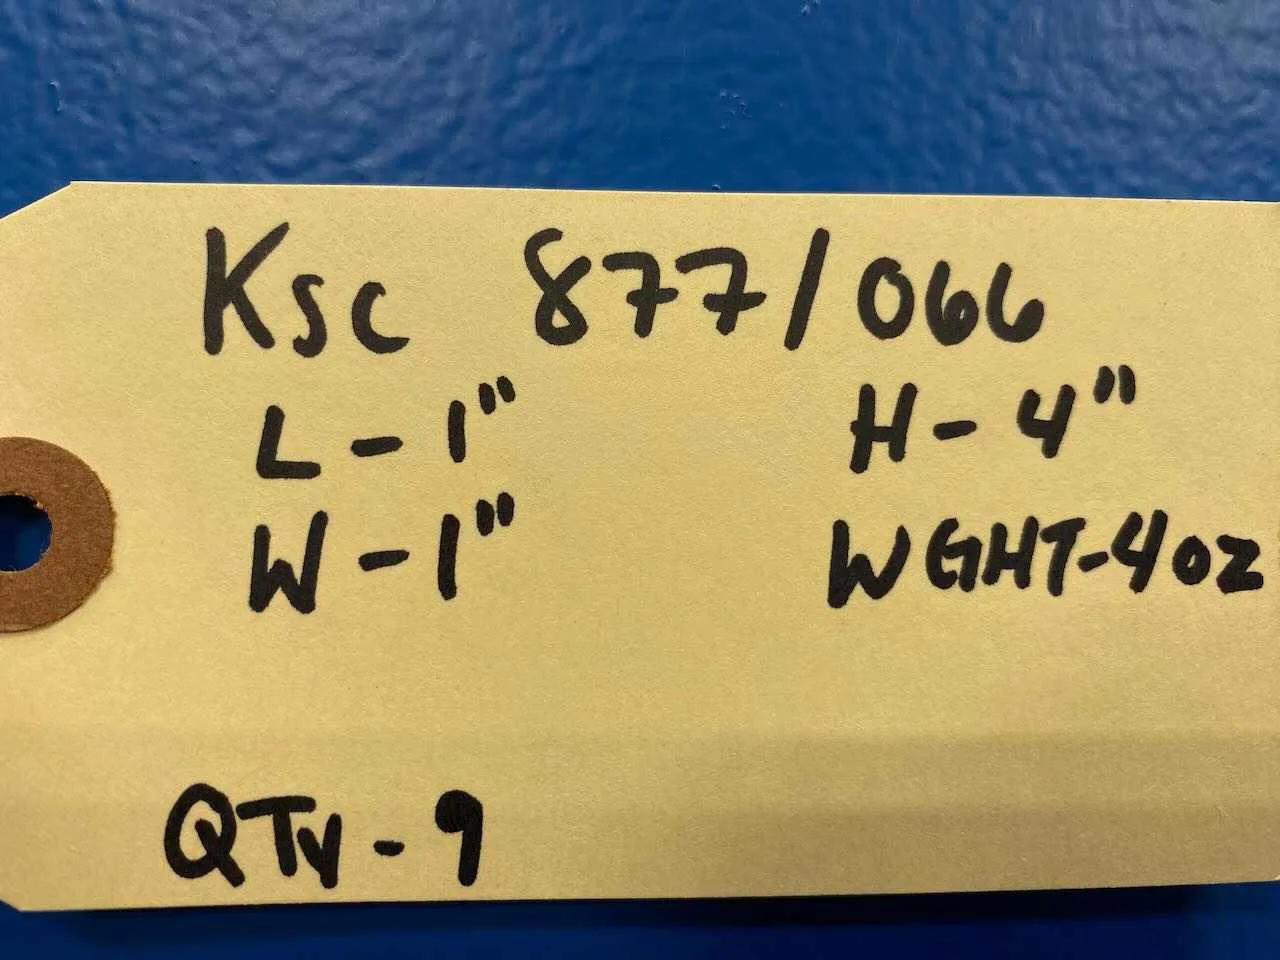 Ksc 877/066
L-1" H-4"
W-1" WGHT-4oz
QTy-9